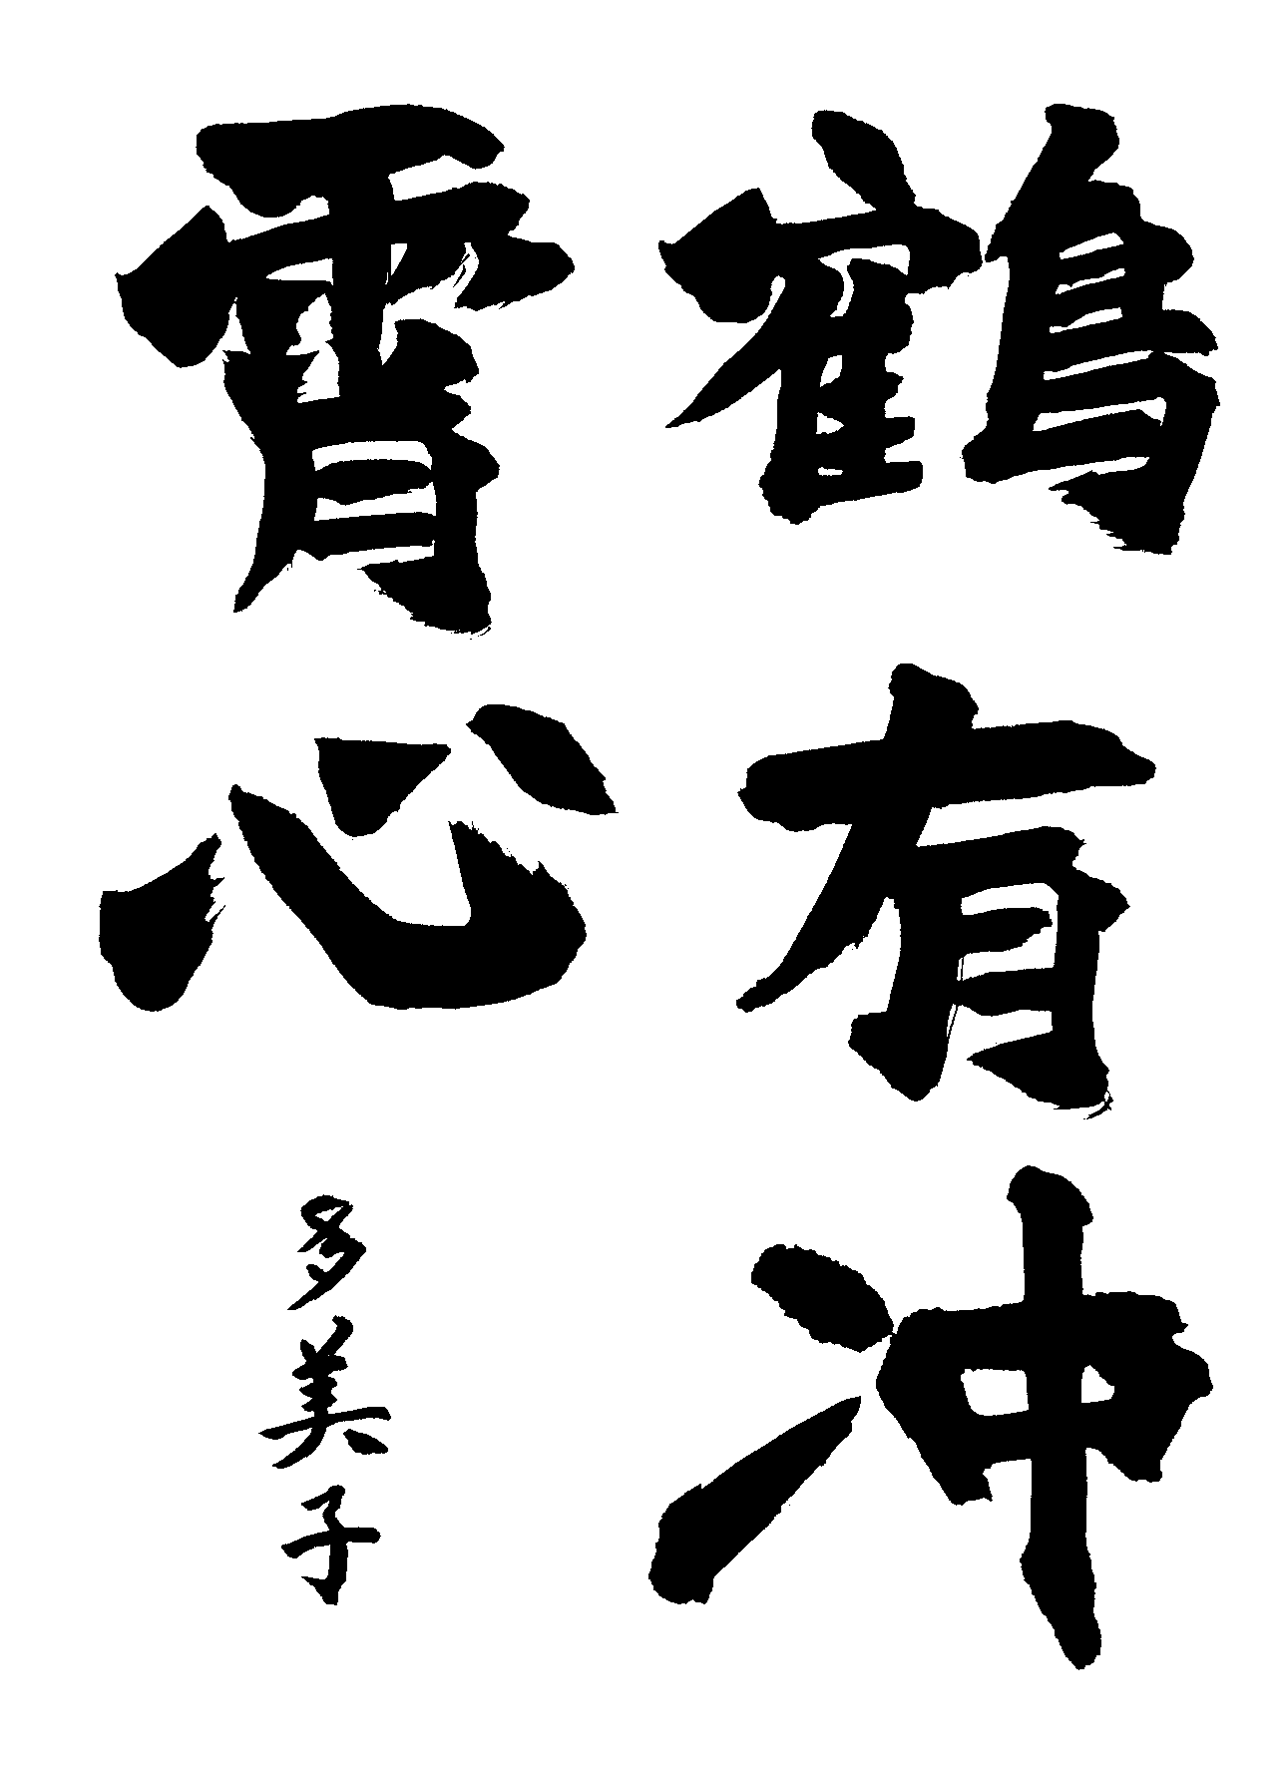 鶴有冲
霄心
多美子